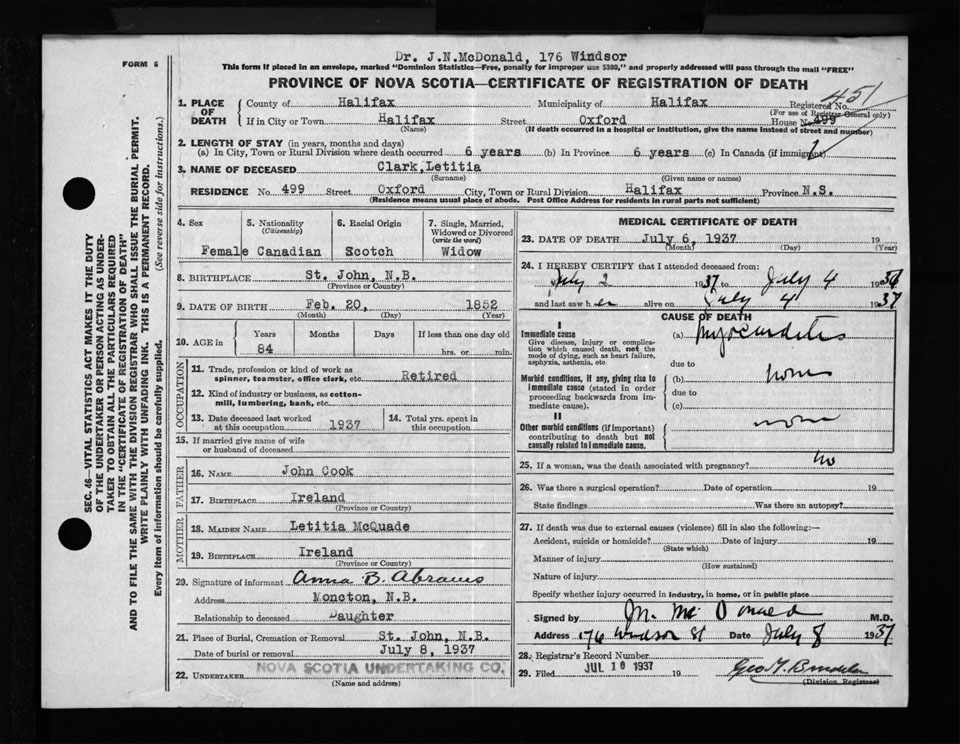 Dr. J.N.McDonald, 176 Windsor
FORM 6
This form if placed in an envelope, marked "Dominion Statistics—Free, penalty for improper use $300," and properly addressed will pass through the mail "FREE"
PROVINCE OF NOVA SCOTIA—CERTIFICATE OF REGISTRATION OF DEATH
1. PLACE OF DEATH
County of Halifax Municipality of Halifax Registered No. 451
(For use of Registrar General only)
If in City or Town Halifax Street Oxford House No. 499
(Name) (If death occurred in a hospital or institution, give the name instead of street and number)
2. LENGTH OF STAY (in years, months and days)
(a) In City, Town or Rural Division where death occurred 6 years (b) In Province 6 years (c) In Canada (if immigrant)
3. NAME OF DECEASED Clark, Letitia
(Surname) (Given name or names)
RESIDENCE No. 499 Street Oxford City, Town or Rural Division Halifax Province N.S.
(Residence means usual place of abode. Post Office Address for residents in rural parts not sufficient)
4. Sex Female
5. Nationality (Citizenship) Canadian
6. Racial Origin Scotch
7. Single, Married, Widowed or Divorced (write the word) Widow
8. BIRTHPLACE St. John, N.B.
(Province or Country)
9. DATE OF BIRTH Feb. 20, 1852
(Month) (Day) (Year)
10. AGE in Years Months Days If less than one day old
84 hrs. or min.
OCCUPATION
11. Trade, profession or kind of work as spinner, teamster, office clerk, etc. Retired
12. Kind of industry or business, as cotton-mill, lumbering, bank, etc.
13. Date deceased last worked at this occupation 1937
14. Total yrs. spent in this occupation
15. If married give name of wife or husband of deceased
FATHER
16. NAME John Cook
17. BIRTHPLACE Ireland
(Province or Country)
MOTHER
18. MAIDEN NAME Letitia McQuade
19. BIRTHPLACE Ireland
(Province or Country)
20. Signature of informant Anna B. Abrams
Address Moncton, N.B.
Relationship to deceased Daughter
21. Place of Burial, Cremation or Removal St. John, N.B.
Date of burial or removal July 8, 1937
NOVA SCOTIA UNDERTAKING CO.
22. UNDERTAKER
(Name and address)
MEDICAL CERTIFICATE OF DEATH
23. DATE OF DEATH July 6, 1937 19
(Month) (Day) (Year)
24. I HEREBY CERTIFY that I attended deceased from:
July 2 1937 to July 4 19
and last saw h er alive on July 4 1937
CAUSE OF DEATH
I
Immediate cause (a) Myocarditis
Give disease, injury or complication which caused death, not the mode of dying, such as heart failure, asphyxia, asthenia, etc.
due to
Morbid conditions, if any, giving rise to immediate cause (stated in order proceeding backwards from immediate cause).
(b) none
due to
(c)
II
Other morbid conditions (if important) contributing to death but not causally related to immediate cause.
none
25. If a woman, was the death associated with pregnancy? no
26. Was there a surgical operation? Date of operation 19
State findings Was there an autopsy?
27. If death was due to external causes (violence) fill in also the following:—
Accident, suicide or homicide? Date of injury 19
(State which)
Manner of injury
(How sustained)
Nature of injury
Specify whether injury occurred in industry, in home, or in public place
Signed by J.N. McDonald M.D.
Address 176 Windsor St Date July 8 1937
28. Registrar's Record Number
29. Filed JUL 10 1937 19
(Division Registrar)
SEC. 46—VITAL STATISTICS ACT MAKES IT THE DUTY
OF THE UNDERTAKER OR PERSON ACTING AS UNDER-
TAKER TO OBTAIN ALL THE PARTICULARS REQUIRED
IN THE "CERTIFICATE OF REGISTRATION OF DEATH"
AND TO FILE THE SAME WITH THE DIVISION REGISTRAR WHO SHALL ISSUE THE BURIAL PERMIT.
WRITE PLAINLY WITH UNFADING INK. THIS IS A PERMANENT RECORD.
Every item of information should be carefully supplied. (See reverse side for instructions.)